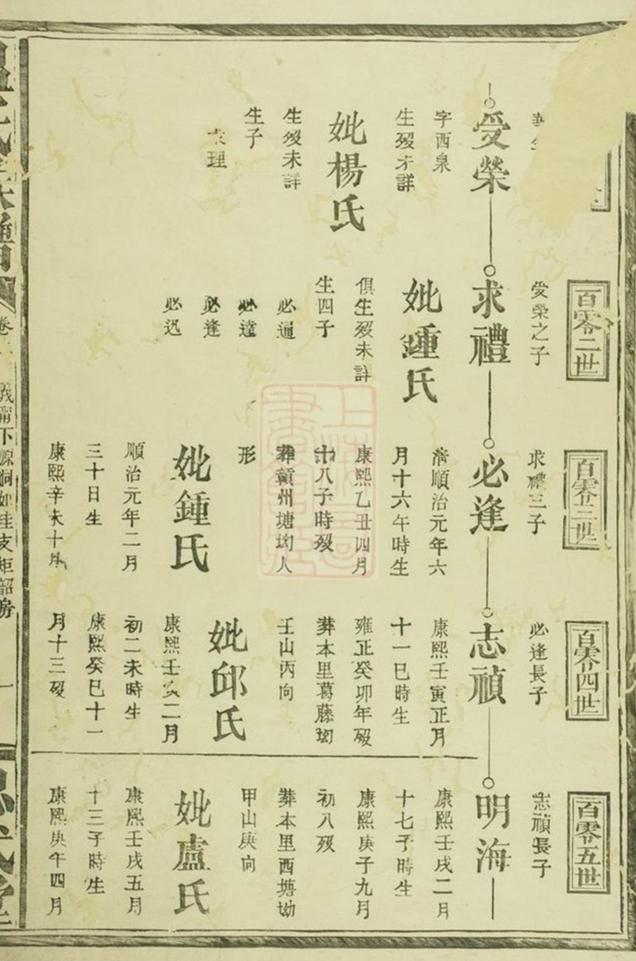 受榮
字西泉
生殁未詳
妣楊氏
生殁未詳
生子
求理
百零二世
受榮之子
求禮
妣鍾氏
俱生殁未詳
生四子
必通
必達
必逢
必迅
百零三世
求禮三子
必逢
清順治元年六
月十六午時生
康熙乙丑四月
十八子時殁
葬贛州塘坳人
形
妣鍾氏
順治元年二月
三十日生
康熙辛未十月
百零四世
必逢長子
志禎
康熙壬寅正月
十一巳時生
雍正癸卯年殁
葬本里葛藤坳
壬山丙向
妣邱氏
康熙壬亥二月
初二未時生
康熙癸巳十一
月十三殁
百零五世
志禎長子
明海
康熙壬戌二月
十七子時生
康熙庚子九月
初八殁
葬本里西塘坳
甲山庚向
妣盧氏
康熙壬戌五月
十三子時生
康熙庚午四月
氏
通
卷
下源
支
房
一